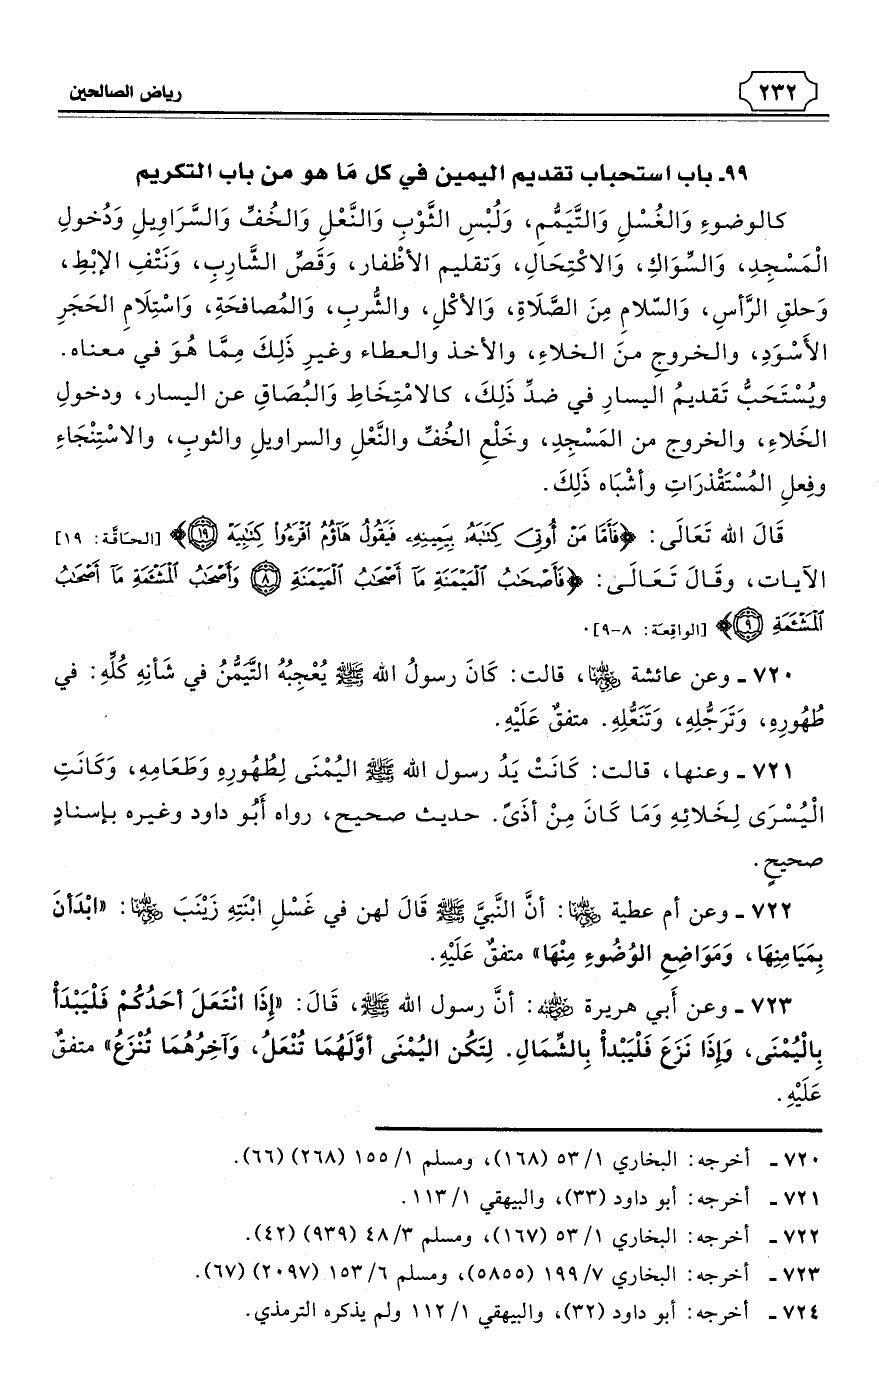 رياض الصالحين
٢٣٢
٩٩ـ باب استحباب تقديم اليمين في كل مَا هو من باب التكريم
كالوضوءِ وَالغُسْلِ وَالتَّيَمُّمِ، وَلُبْسِ الثَّوْبِ وَالنَّعْلِ وَالخُفِّ وَالسَّرَاوِيلِ وَدُخولِ
الْمَسْجِدِ، وَالسِّوَاكِ، وَالاكْتِحَالِ، وَتقليم الأظْفار، وَقَصِّ الشَّارِبِ، وَنَتْفِ الإبْطِ،
وَحلقِ الرَّأسِ، وَالسّلامِ مِنَ الصَّلَاةِ، وَالأكْلِ، والشُّربِ، وَالمُصافحَةِ، وَاسْتِلَامِ الحَجَرِ
الأَسْوَدِ، والخروجِ منَ الخلاءِ، والأخذ والعطاء وغيرِ ذَلِكَ مِمَّا هُوَ في معناه.
ويُسْتَحَبُّ تَقديمُ اليسارِ في ضدِّ ذَلِكَ، كالامْتِخَاطِ وَالبُصَاقِ عن اليسار، ودخولِ
الخَلاءِ، والخروج من المَسْجِدِ، وخَلْعِ الخُفِّ والنَّعْلِ والسراويلِ والثوبِ، والاسْتِنْجَاءِ
وفِعلِ المُسْتَقْذرَاتِ وأشْبَاه ذَلِكَ.
قَالَ الله تَعَالَى: ﴿فَأَمَّا مَنْ أُوتِيَ كِتَٰبَهُۥ بِيَمِينِهِۦ فَيَقُولُ هَآؤُمُ ٱقْرَءُوا۟ كِتَٰبِيَهْ ۝١٩﴾ [الحاقّة: ١٩]
الآيات، وقَالَ تَعَالَى: ﴿فَأَصْحَٰبُ ٱلْمَيْمَنَةِ مَآ أَصْحَٰبُ ٱلْمَيْمَنَةِ ۝٨ وَأَصْحَٰبُ ٱلْمَشْـَٔمَةِ مَآ أَصْحَٰبُ
ٱلْمَشْـَٔمَةِ ۝٩﴾ [الواقعة: ٨-٩].
٧٢٠ـ وعن عائشة رضي الله عنها، قالت: كَانَ رسولُ الله ﷺ يُعْجِبُهُ التَّيَمُّنُ في شَأنِهِ كُلِّهِ: في
طُهُورِهِ، وَتَرَجُّلِهِ، وَتَنَعُّلِهِ. متفقٌ عَلَيْهِ.
٧٢١ـ وعنها، قالت: كَانَتْ يَدُ رسول الله ﷺ اليُمْنَى لِطُهُورِهِ وَطَعَامِهِ، وَكَانَتِ
الْيُسْرَى لِخَلائِهِ وَمَا كَانَ مِنْ أذَىً. حديث صحيح، رواه أَبُو داود وغيره بإسنادٍ
صحيحٍ.
٧٢٢ـ وعن أم عطية رضي الله عنها: أنَّ النَّبيَّ ﷺ قَالَ لهن في غَسْلِ ابْنَتِهِ زَيْنَبَ رضي الله عنها: «ابْدَأنَ
بِمَيَامِنِهَا، وَمَوَاضِعِ الوُضُوءِ مِنْهَا» متفقٌ عَلَيْهِ.
٧٢٣ـ وعن أَبي هريرة رضي الله عنه: أنَّ رسول الله ﷺ، قَالَ: «إِذَا انْتَعَلَ أحَدُكُمْ فَلْيَبْدَأْ
بِالْيُمْنَى، وَإِذَا نَزَعَ فَلْيَبْدأْ بِالشِّمَالِ. لِتَكُن اليُمْنَى أوَّلَهُمَا تُنْعَلُ، وَآخِرُهُمَا تُنْزَعُ» متفقٌ
عَلَيْهِ.
٧٢٠ـ أخرجه: البخاري ١/ ٥٣ (١٦٨)، ومسلم ١/ ١٥٥ (٢٦٨) (٦٦).
٧٢١ـ أخرجه: أبو داود (٣٣)، والبيهقي ١/ ١١٣.
٧٢٢ـ أخرجه: البخاري ١/ ٥٣ (١٦٧)، ومسلم ٣/ ٤٨ (٩٣٩) (٤٢).
٧٢٣ـ أخرجه: البخاري ٧/ ١٩٩ (٥٨٥٥)، ومسلم ٦/ ١٥٣ (٢٠٩٧) (٦٧).
٧٢٤ـ أخرجه: أبو داود (٣٢)، والبيهقي ١/ ١١٢ ولم يذكره الترمذي.